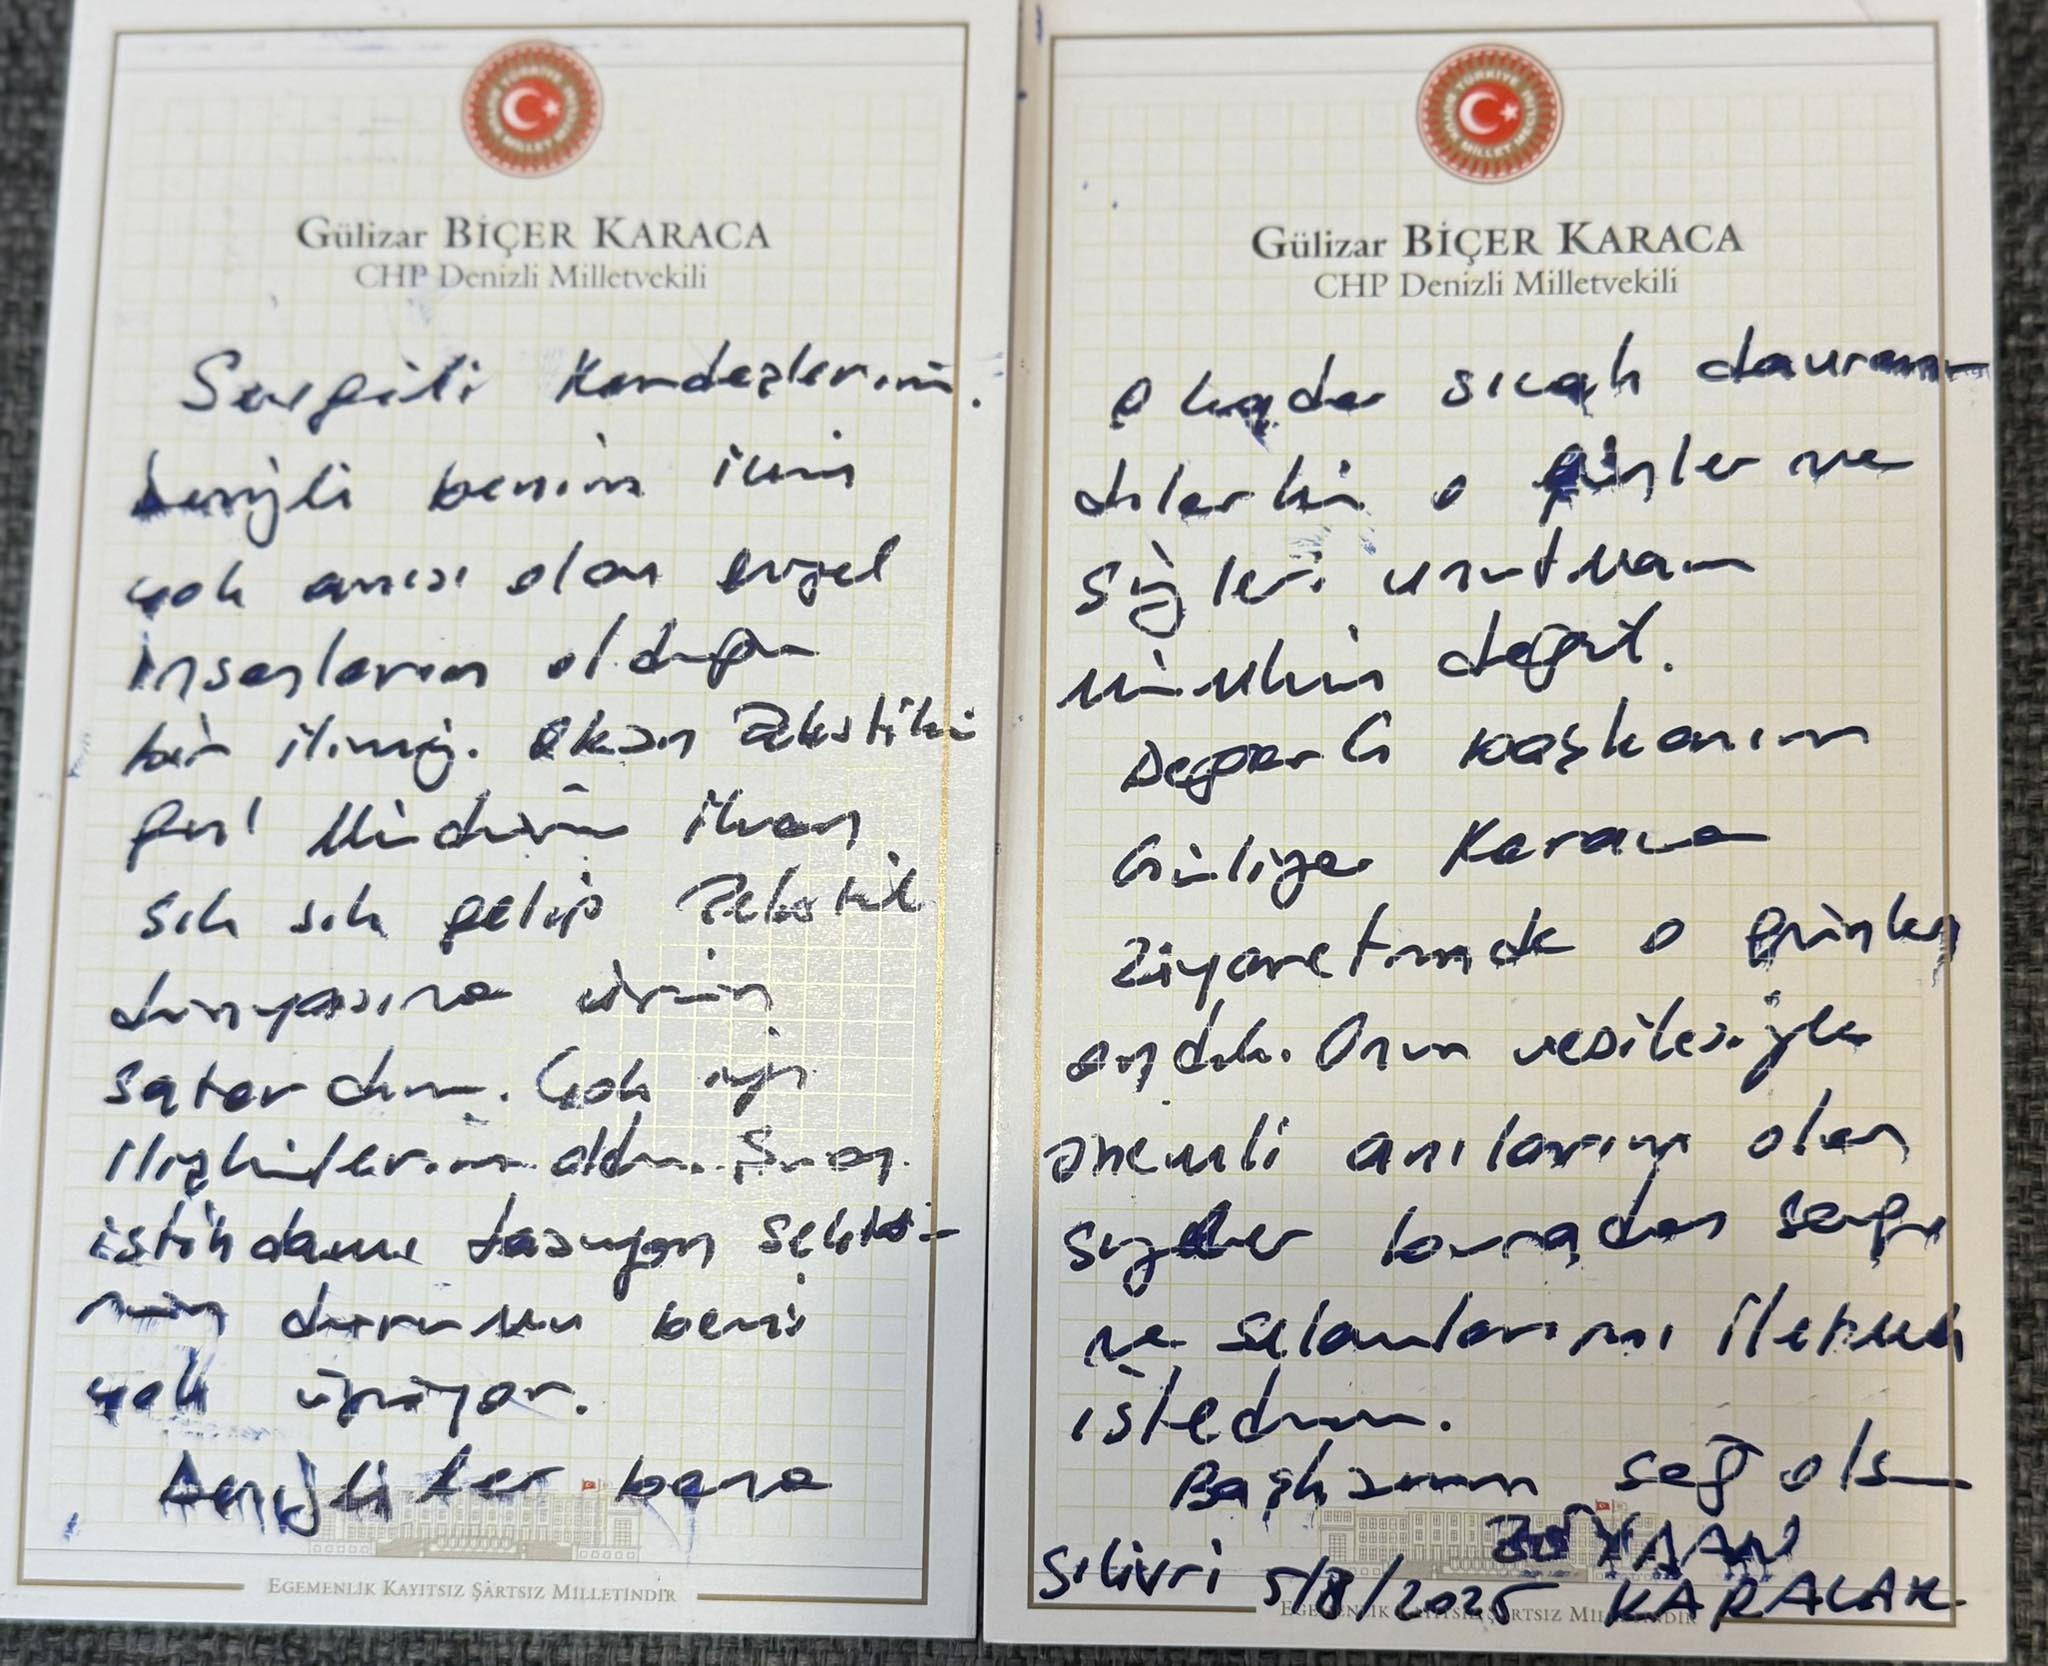 Gülizar BİÇER KARACA
CHP Denizli Milletvekili
Sevgili Kardeşlerim.
Denizli benim için
çok anısı olan güzel
insanların olduğu
bir ilimiz. Tekstilin
Müdürü iken
sık sık gelip Tekstil
dünyasına ürün
satardım. Çok iyi
ilişkilerim oldu. Şuan
istihdamı taşıyan sektö-
rün durumu beni
çok üzüyor.
Denizliler bana
EGEMENLİK KAYITSIZ ŞARTSIZ MİLLETİNDİR
Gülizar BİÇER KARACA
CHP Denizli Milletvekili
o kadar sıcak davran-
dılarki o günler ve
sizleri unutmam
mümkün değil.
Değerli başkanım
Gülizar Karaca
ziyaretimde o günleri
andık. Onun vesilesiyle
önemli anılarım olan
sizlere buradan sevgi
ve selamlarımı iletmek
istedim.
Başkanım sağ olsun
Silivri 5/8/2025 KARALAR
EGEMENLİK KAYITSIZ ŞARTSIZ MİLLETİNDİR